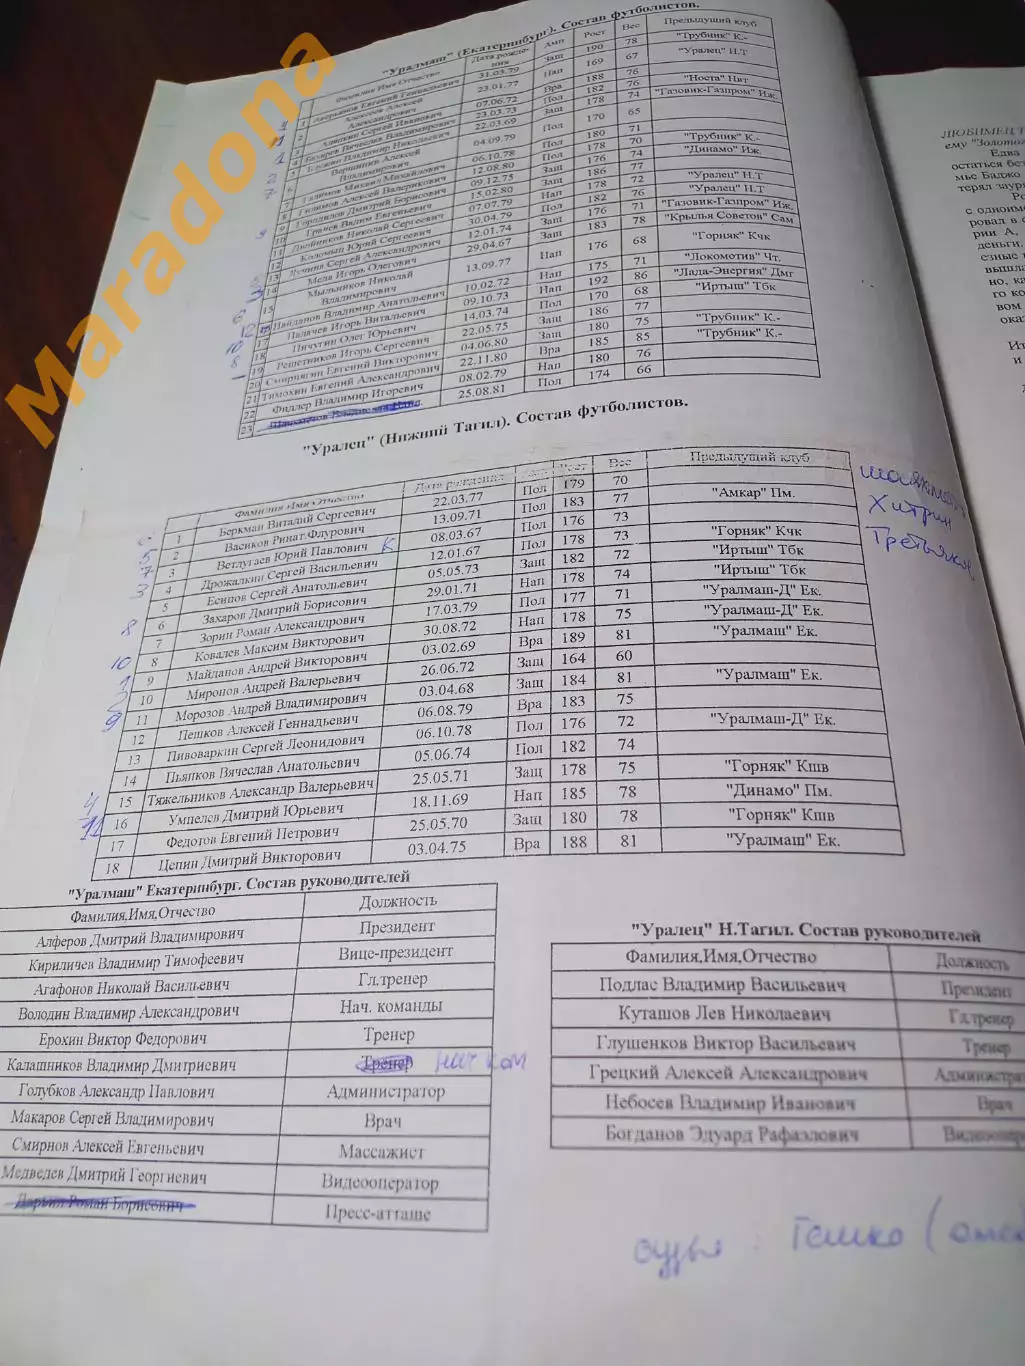 "Уралмаш" (Екатеринбург). Состав футболистов.
Фамилия Имя Отчество Дата рождения Амп Рост Вес Предыдущий клуб
1 Аверьянов Евгений Геннадьевич 31.03.79 Защ 190 78 "Трубник" К.-
2 Алексеев Алексей Александрович 23.01.77 Нап 169 67 "Уралец" Н.Т
3 Аляпкин Сергей Иванович 07.06.72 Вра 188 76
4 Вячеслав Владимирович 23.03.73 Защ 182 76 "Носта" Нвт
5 Владимир Николаевич 22.03.69 Защ 178 74 "Газовик-Газпром" Иж.
6 Вершинин Алексей Владимирович 04.09.79 Пол 170 65
7 Галимов Михаил Михайлович 06.10.78 Пол 180 71
8 Галимов Алексей Валерикович 12.08.80 Защ 176 70 "Трубник" К.-
9 Городилов Дмитрий Борисович 09.12.75 Защ 186 74 "Динамо" Иж.
10 Гранев Вадим Евгеньевич 15.02.80 Пол 178 77
11 Двойников Николай Сергеевич 07.07.79 Нап 176 72 "Уралец" Н.Т
12 Коломыц Юрий Сергеевич 30.04.79 Пол 182 76 "Уралец" Н.Т
13 Лучина Сергей Александрович 12.01.74 Защ 176 71 "Газовик-Газпром" Иж.
14 Меда Игорь Олегович 29.04.67 Защ 183 78 "Крылья Советов" Сам
15 Мыльников Николай Владимирович 13.09.77 Нап 176 68 "Горняк" Кчк
Найданов Владимир Анатольевич 10.02.72 Нап 175 71 "Локомотив" Чт.
17 Палачев Игорь Витальевич 09.10.73 Защ 192 86 "Лада-Энергия" Дмг
18 Пичугин Олег Юрьевич 14.03.74 Защ 170 68 "Иртыш" Тбк
19 Решетников Игорь Сергеевич 22.05.75 Защ 186 77
20 Смирнягин Евгений Викторович 04.06.80 Защ 180 75 "Трубник" К.-
21 Тимохин Евгений Александрович 22.11.80 Вра 185 85 "Трубник" К.-
22 Фидлер Владимир Игоревич 08.02.79 Нап 180 76
23 25.08.81 Пол 174 66
"Уралец" (Нижний Тагил). Состав футболистов.
Фамилия Имя Отчество Дата рождения Рост Вес Предыдущий клуб
1 Беркман Виталий Сергеевич 22.03.77 Пол 179 70
2 Васиков Ринат Флурович 13.09.71 Пол 183 77 "Амкар" Пм.
3 Ветлугаев Юрий Павлович К 08.03.67 Пол 176 73
4 Дрожалкин Сергей Васильевич 12.01.67 Пол 178 73 "Горняк" Кчк
5 Есипов Сергей Анатольевич 05.05.73 Защ 182 72 "Иртыш" Тбк
6 Захаров Дмитрий Борисович 29.01.71 Нап 178 74 "Иртыш" Тбк
7 Зорин Роман Александрович 17.03.79 Пол 177 71 "Уралмаш-Д" Ек.
8 Ковалев Максим Викторович 30.08.72 Нап 178 75 "Уралмаш-Д" Ек.
9 Майданов Андрей Викторович 03.02.69 Вра 189 81 "Уралмаш" Ек.
10 Миронов Андрей Валерьевич 26.06.72 Защ 164 60
11 Морозов Андрей Владимирович 03.04.68 Защ 184 81 "Уралмаш" Ек.
12 Пешков Алексей Геннадьевич 06.08.79 Вра 183 75
13 Пивоваркин Сергей Леонидович 06.10.78 Пол 176 72 "Уралмаш-Д" Ек.
14 Пьянков Вячеслав Анатольевич 05.06.74 Пол 182 74
15 Тяжельников Александр Валерьевич 25.05.71 Защ 178 75 "Горняк" Кшв
16 Умпелев Дмитрий Юрьевич 18.11.69 Нап 185 78 "Динамо" Пм.
17 Федотов Евгений Петрович 25.05.70 Защ 180 78 "Горняк" Кшв
18 Цепин Дмитрий Викторович 03.04.75 Вра 188 81 "Уралмаш" Ек.
Хитрин
Третьяков
"Уралмаш" Екатеринбург. Состав руководителей
Фамилия,Имя,Отчество Должность
Алферов Дмитрий Владимирович Президент
Кириличев Владимир Тимофеевич Вице-президент
Агафонов Николай Васильевич Гл.тренер
Володин Владимир Александрович Нач. команды
Ерохин Виктор Федорович Тренер
Калашников Владимир Дмитриевич Тренер нач ком
Голубков Александр Павлович Администратор
Макаров Сергей Владимирович Врач
Смирнов Алексей Евгеньевич Массажист
Медведев Дмитрий Георгиевич Видеооператор
Дарьин Роман Борисович Пресс-атташе
"Уралец" Н.Тагил. Состав руководителей
Фамилия,Имя,Отчество Должность
Подлас Владимир Васильевич Президент
Куташов Лев Николаевич Гл.тренер
Глушенков Виктор Васильевич Тренер
Грецкий Алексей Александрович Администрат
Небосев Владимир Иванович Врач
Богданов Эдуард Рафаэлович Видеоопера
судья : Гешко (
ЛЮБИМЕЦ
ему "Золото
Едва
остаться без
мьс Биджо
терял заур
с одноиме
ровал в с
рии А,
деньги.
езные
вышла
но, ка
го ко
вом
ока
Ит
и
Maradona